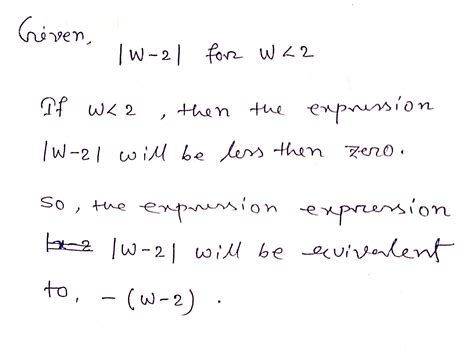 Given,
|W-2| for W<2
If W<2, then the expression
|W-2| will be less then zero.
So, the expression expression
|W-2| will be equivalent
to, -(W-2).